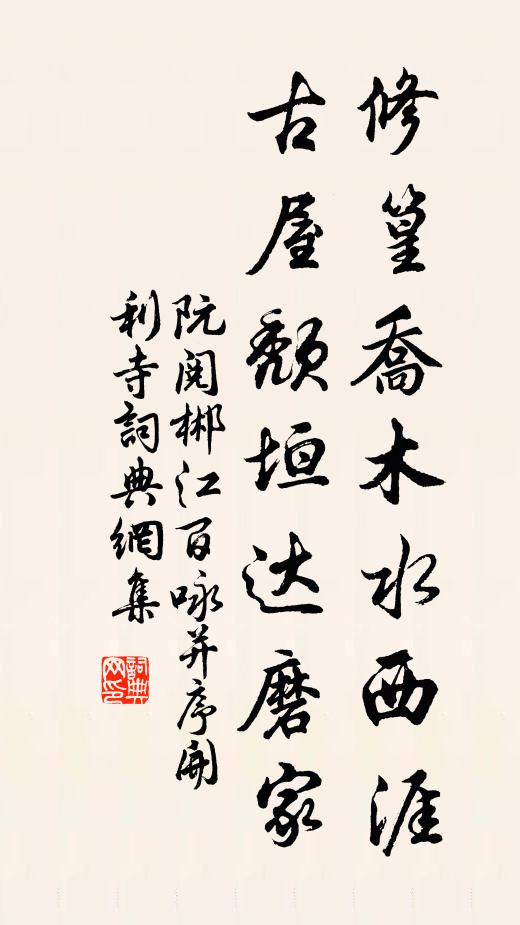 修篁喬木水西涯
古屋頹垣达磨家
阮閱郴江百咏并序開
利寺詞典網集
詞典网印